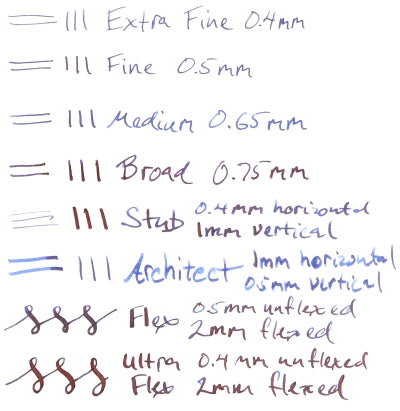 Extra Fine 0.4mm
Fine 0.5mm
Medium 0.65mm
Broad 0.75mm
Stub 0.4mm horizontal
1mm vertical
Architect 1mm horizontal
0.5mm vertical
Flex 0.5mm unflexed
2mm flexed
Ultra 0.4mm unflexed
Flex 2mm flexed